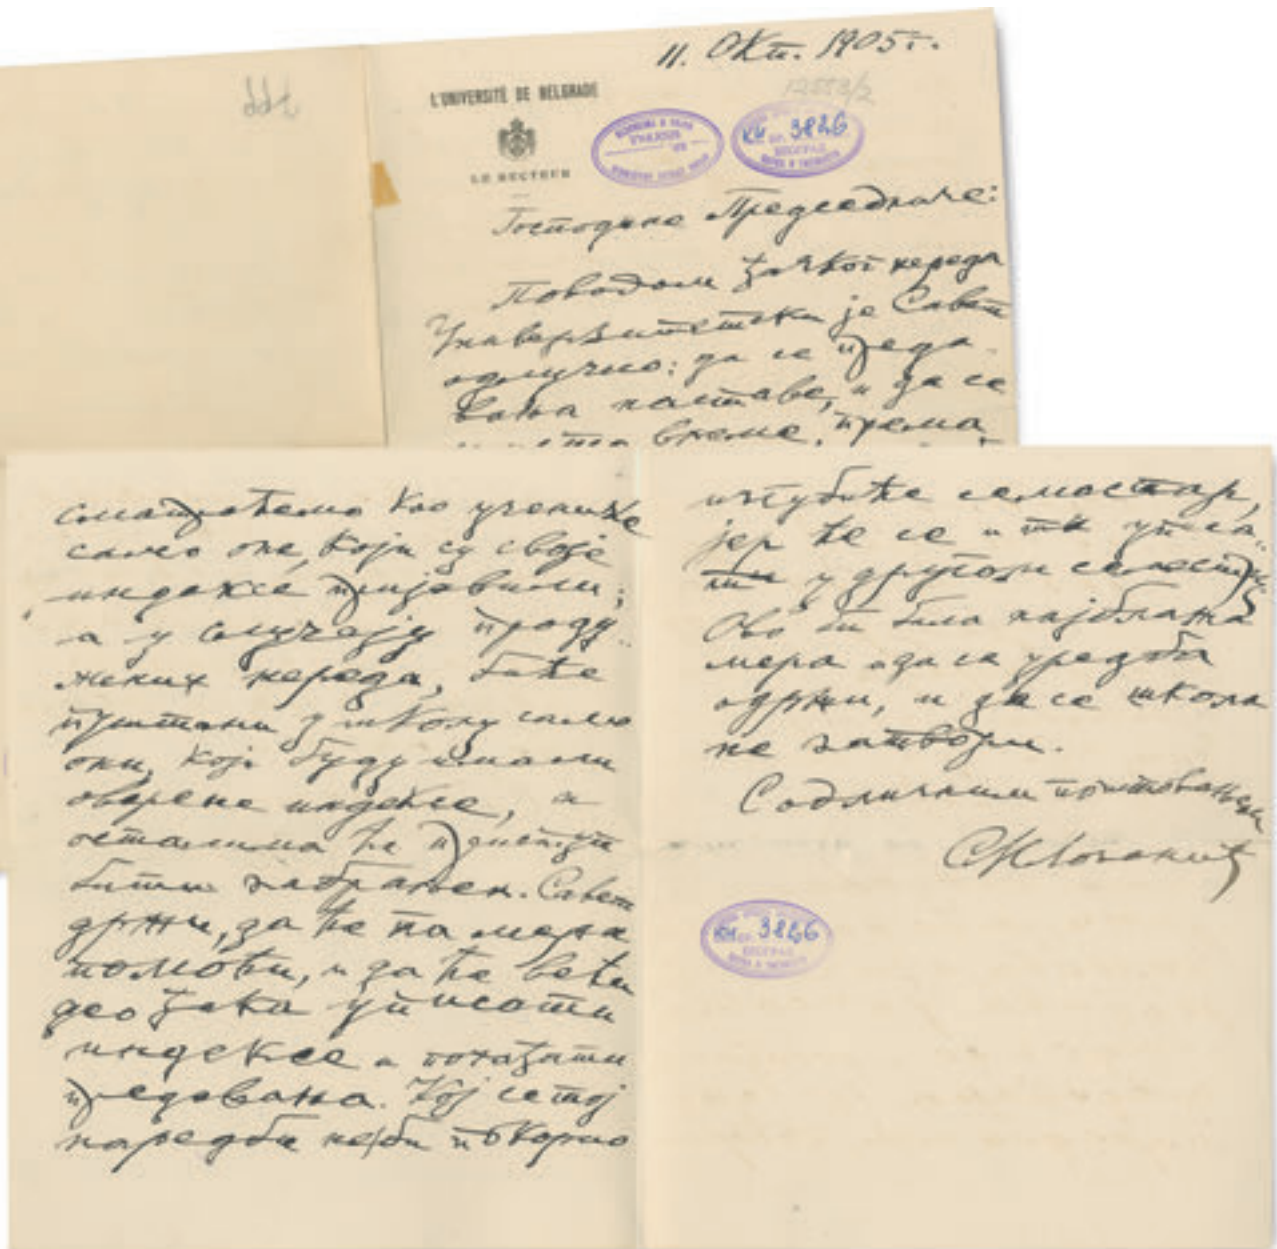 11. Окт. 1905 г.
L'UNIVERSITÉ DE BELGRADE
12553/2
LE RECTEUR
3826
БЕОГРАД
Господине Председниче:
Поводом ђачког нереда
Универзитетски је Савет
одлучио: да се преда-
вања наставе, и да се
време, према
сматраћемо као ученике
само оне, који су своје
индексе пријавили;
а у случају проду-
жених нереда, биће
пуштани у школу само
они, који буду имали
оверене индексе, а
осталима ће приступ
бити забрањен. Савет
држи, да ће та мера
помоћи, и да ће већи
део ђака уписати
индексе и похађати
предавања. Кој се тој
наредби не би покорио
изгубиће семестар,
јер ће се и ти уписа-
ти у другом семестру.
Ово би била најблажа
мера и да се уредба
одржи, и да се школа
не затвори.
С одличним поштовањем
СМЛозанић
3826
БЕОГРАД